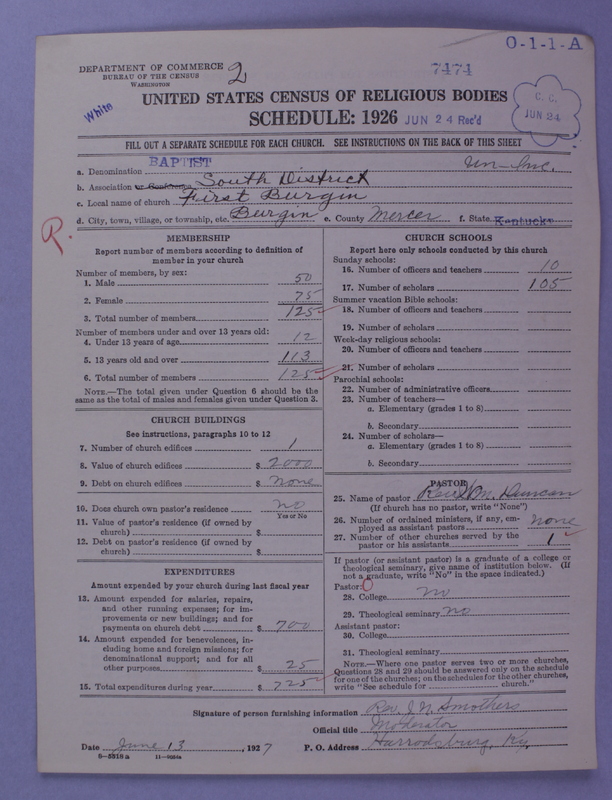 O-1-1-A
DEPARTMENT OF COMMERCE
BUREAU OF THE CENSUS
WASHINGTON
2
7474
White
UNITED STATES CENSUS OF RELIGIOUS BODIES
SCHEDULE: 1926 JUN 24 Rec'd
C. C.
JUN 24
FILL OUT A SEPARATE SCHEDULE FOR EACH CHURCH. SEE INSTRUCTIONS ON THE BACK OF THIS SHEET
a. Denomination BAPTIST Un-Inc.
b. Association or Conference South District
c. Local name of church First Burgin
d. City, town, village, or township, etc. Burgin e. County Mercer f. State Kentucky
R.
MEMBERSHIP
Report number of members according to definition of
member in your church
Number of members, by sex:
1. Male 50
2. Female 75
3. Total number of members 125
Number of members under and over 13 years old:
4. Under 13 years of age 12
5. 13 years old and over 113
6. Total number of members 125
NOTE.—The total given under Question 6 should be the
same as the total of males and females given under Question 3.
CHURCH BUILDINGS
See instructions, paragraphs 10 to 12
7. Number of church edifices 1
8. Value of church edifices $ 2000
9. Debt on church edifices $ None
10. Does church own pastor's residence no
Yes or No
11. Value of pastor's residence (if owned by
church) $
12. Debt on pastor's residence (if owned by
church) $
EXPENDITURES
Amount expended by your church during last fiscal year
13. Amount expended for salaries, repairs,
and other running expenses; for im-
provements or new buildings; and for
payments on church debt $ 700
14. Amount expended for benevolences, in-
cluding home and foreign missions; for
denominational support; and for all
other purposes $ 25
15. Total expenditures during year $ 725
CHURCH SCHOOLS
Report here only schools conducted by this church
Sunday schools:
16. Number of officers and teachers 10
17. Number of scholars 105
Summer vacation Bible schools:
18. Number of officers and teachers
19. Number of scholars
Week-day religious schools:
20. Number of officers and teachers
21. Number of scholars
Parochial schools:
22. Number of administrative officers
23. Number of teachers—
a. Elementary (grades 1 to 8)
b. Secondary
24. Number of scholars—
a. Elementary (grades 1 to 8)
b. Secondary
PASTOR
25. Name of pastor Rev. M. Duncan
(If church has no pastor, write "None")
26. Number of ordained ministers, if any, em-
ployed as assistant pastors none
27. Number of other churches served by the
pastor or his assistants 1
If pastor (or assistant pastor) is a graduate of a college or
theological seminary, give name of institution below. (If
not a graduate, write "No" in the space indicated.)
Pastor: 0
28. College no
29. Theological seminary no
Assistant pastor:
30. College
31. Theological seminary
NOTE.—Where one pastor serves two or more churches,
Questions 28 and 29 should be answered only on the schedule
for one of the churches; on the schedules for the other churches,
write "See schedule for church."
Signature of person furnishing information Rev. I. N. Smothers
Official title Moderator
Date June 13, 1927 P. O. Address Harrodsburg, Ky.